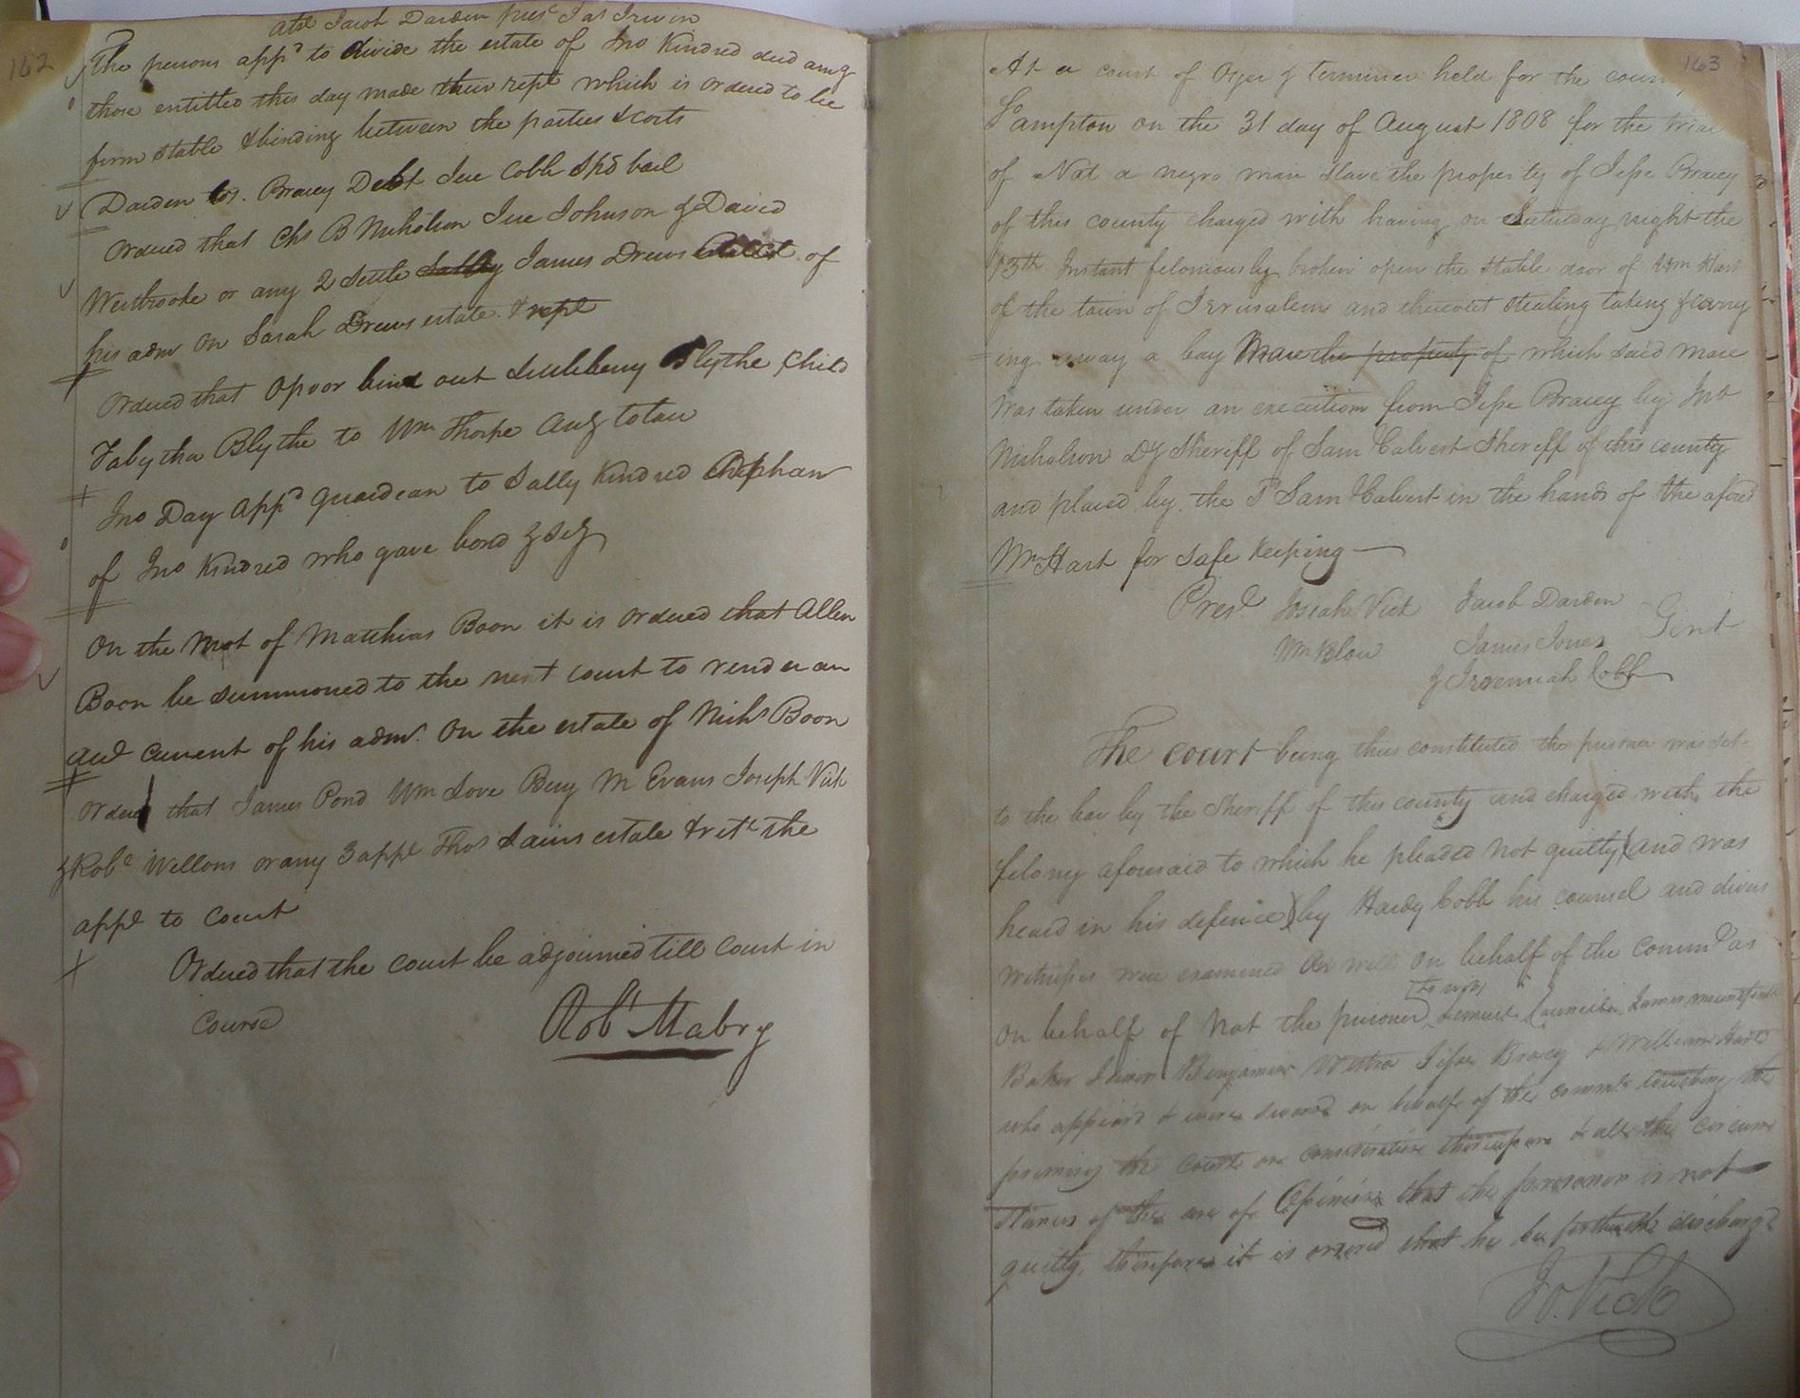 162
Jacob Darden pres.t Jas Irwin
The persons app.d to divide the estate of Jno Kindred decd amg
those entitled this day made their rept which is ordered to be
firm stable & binding between the parties & costs
Darden vs. Bracey Debt Jere Cobb spd bail
Ordered that Chs B Nicholson Jere Johnson & David
Westbrooke or any 2 settle Sally James Drews acct of
his adm on Sarah Drews estate & rept
Ordered that Opoor bind out Littleberry Blythe Child
Tabytha Blythe to Wm Thorpe Acg to law
Jno Day app.d guardean to Sally Kindred Orphan
of Jno Kindred who gave bond & scy
On the mot of Matthias Boon it is ordered that Allen
Boon be summoned to the next court to render an
acct current of his adm. on the estate of Nichs Boon
Ordered that James Pond Wm Love Benj M Evans Joseph Vick
& Robt Wellons or any 3 appe Thos estate & rete the
appt to Court
Ordered that the court be adjourned till Court in
Course
Robt Mabry
163
At a court of Oyer & terminer held for the coun
So ampton on the 31 day of August 1808 for the trial
of Nat a negro man slave the property of Jesse Bracey
of this county charged with having on Saturday night the
13th Instant feloniously broken open the stable door of Wm Hart
of the town of Jerusalem and thereout stealing taking & carry
ing away a bay Mare the property of which said mare
was taken under an execution from Jesse Bracey by Jno
Nicholson Dy Sheriff of Sam Calvert Sheriff of this county
and placed by the Sd Sam Calvert in the hands of the afosd
Wm Hart for safe keeping —
Prest Josiah Vick Jacob Darden
Wm Blow James Jones Gent
& Jeremiah Cobb
The court being thus constituted the prisoner was set
to the bar by the Sheriff of this county and charged with the
felony aforesaid to which he pleaded not guilty and was
heard in his defence by Hardy Cobb his counsel and divers
witnesses were examined as well on behalf of the commth as
on behalf of Nat the prisoner (to wit) Councilor James
Baker Benjamin Jesse Bracey & William Hart
who appeard & were sworn on behalf of the commth touching the
premises the court on consideration thereupon & all the circum
stances of the are of Opinion that the prisoner is not
guilty, therefore it is ordered that he be forthwith discharg'd
Jo. Vick